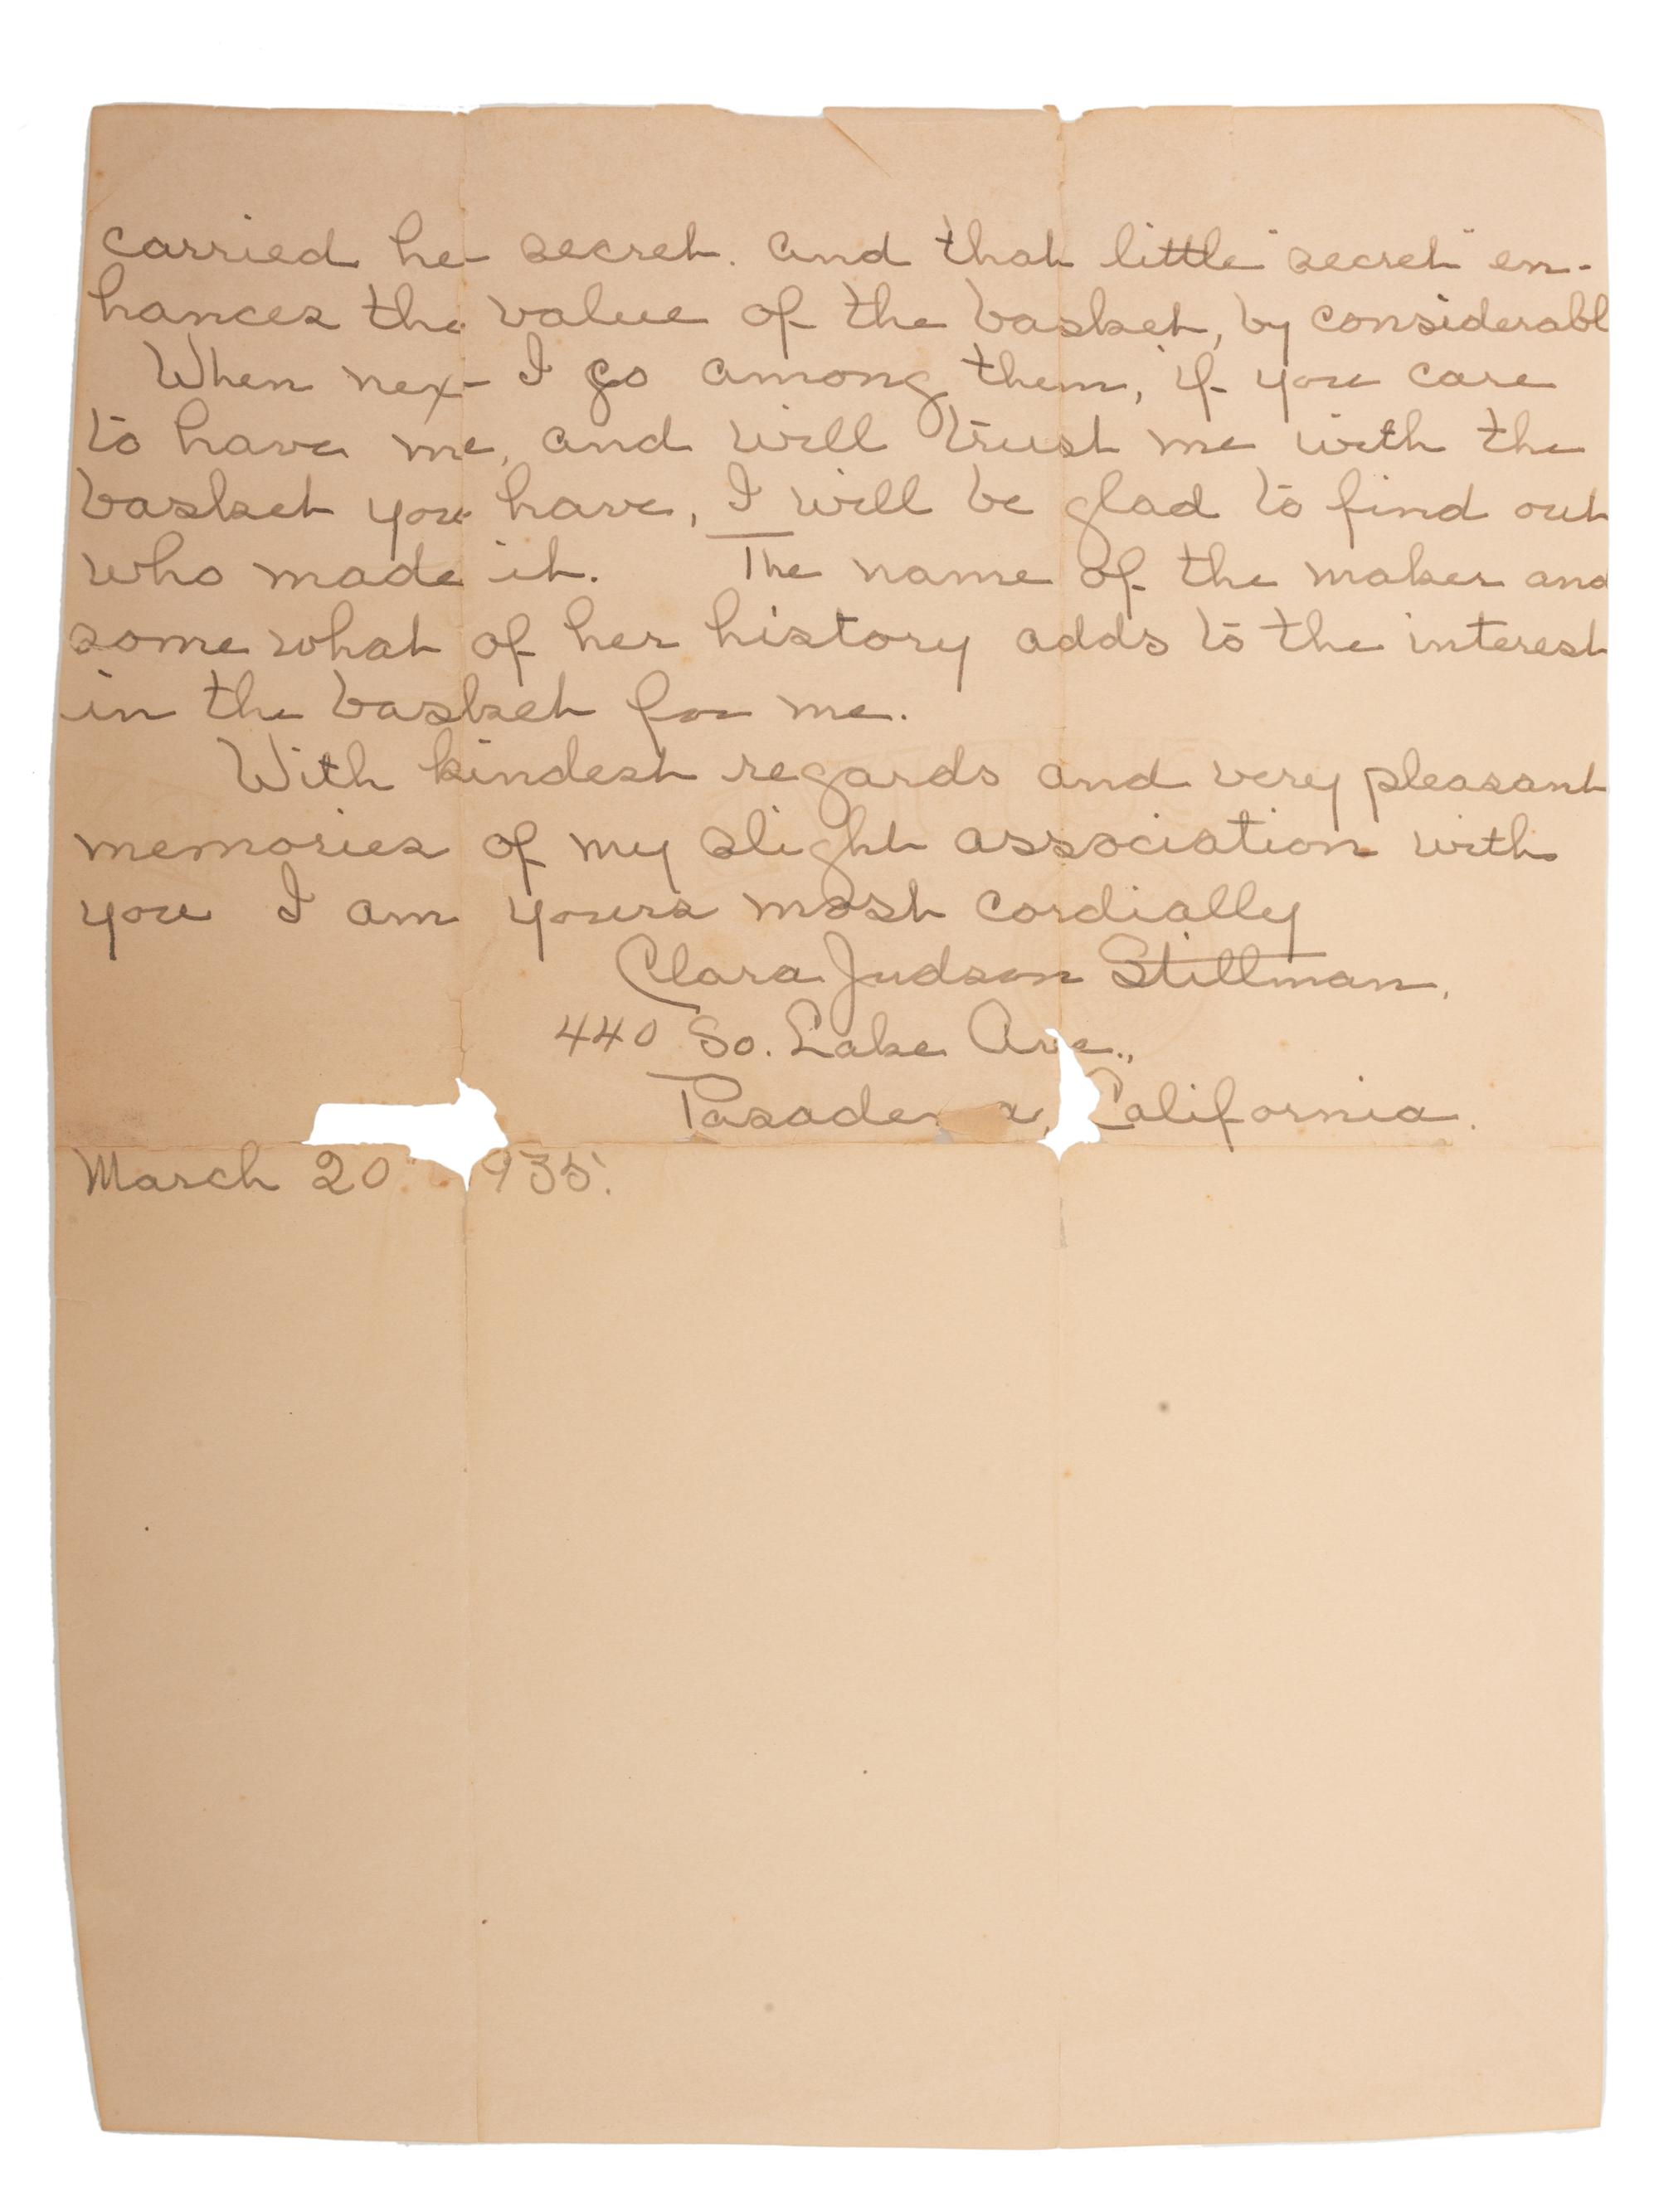 carried he secret. and that little "secret" en-
hances the value of the basket, by considerabl
When nex I go among them, if you care
to have me, and will trust me with the
basket you have, I will be glad to find out
who made it. The name of the maker and
some what of her history adds to the interest
in the basket for me.
With kindest regards and very pleasant
memories of my slight association with
you I am yours most cordially
Clara Judson Stillman.
440 So. Lake Ave.,
Pasadena, California.
March 20 935.